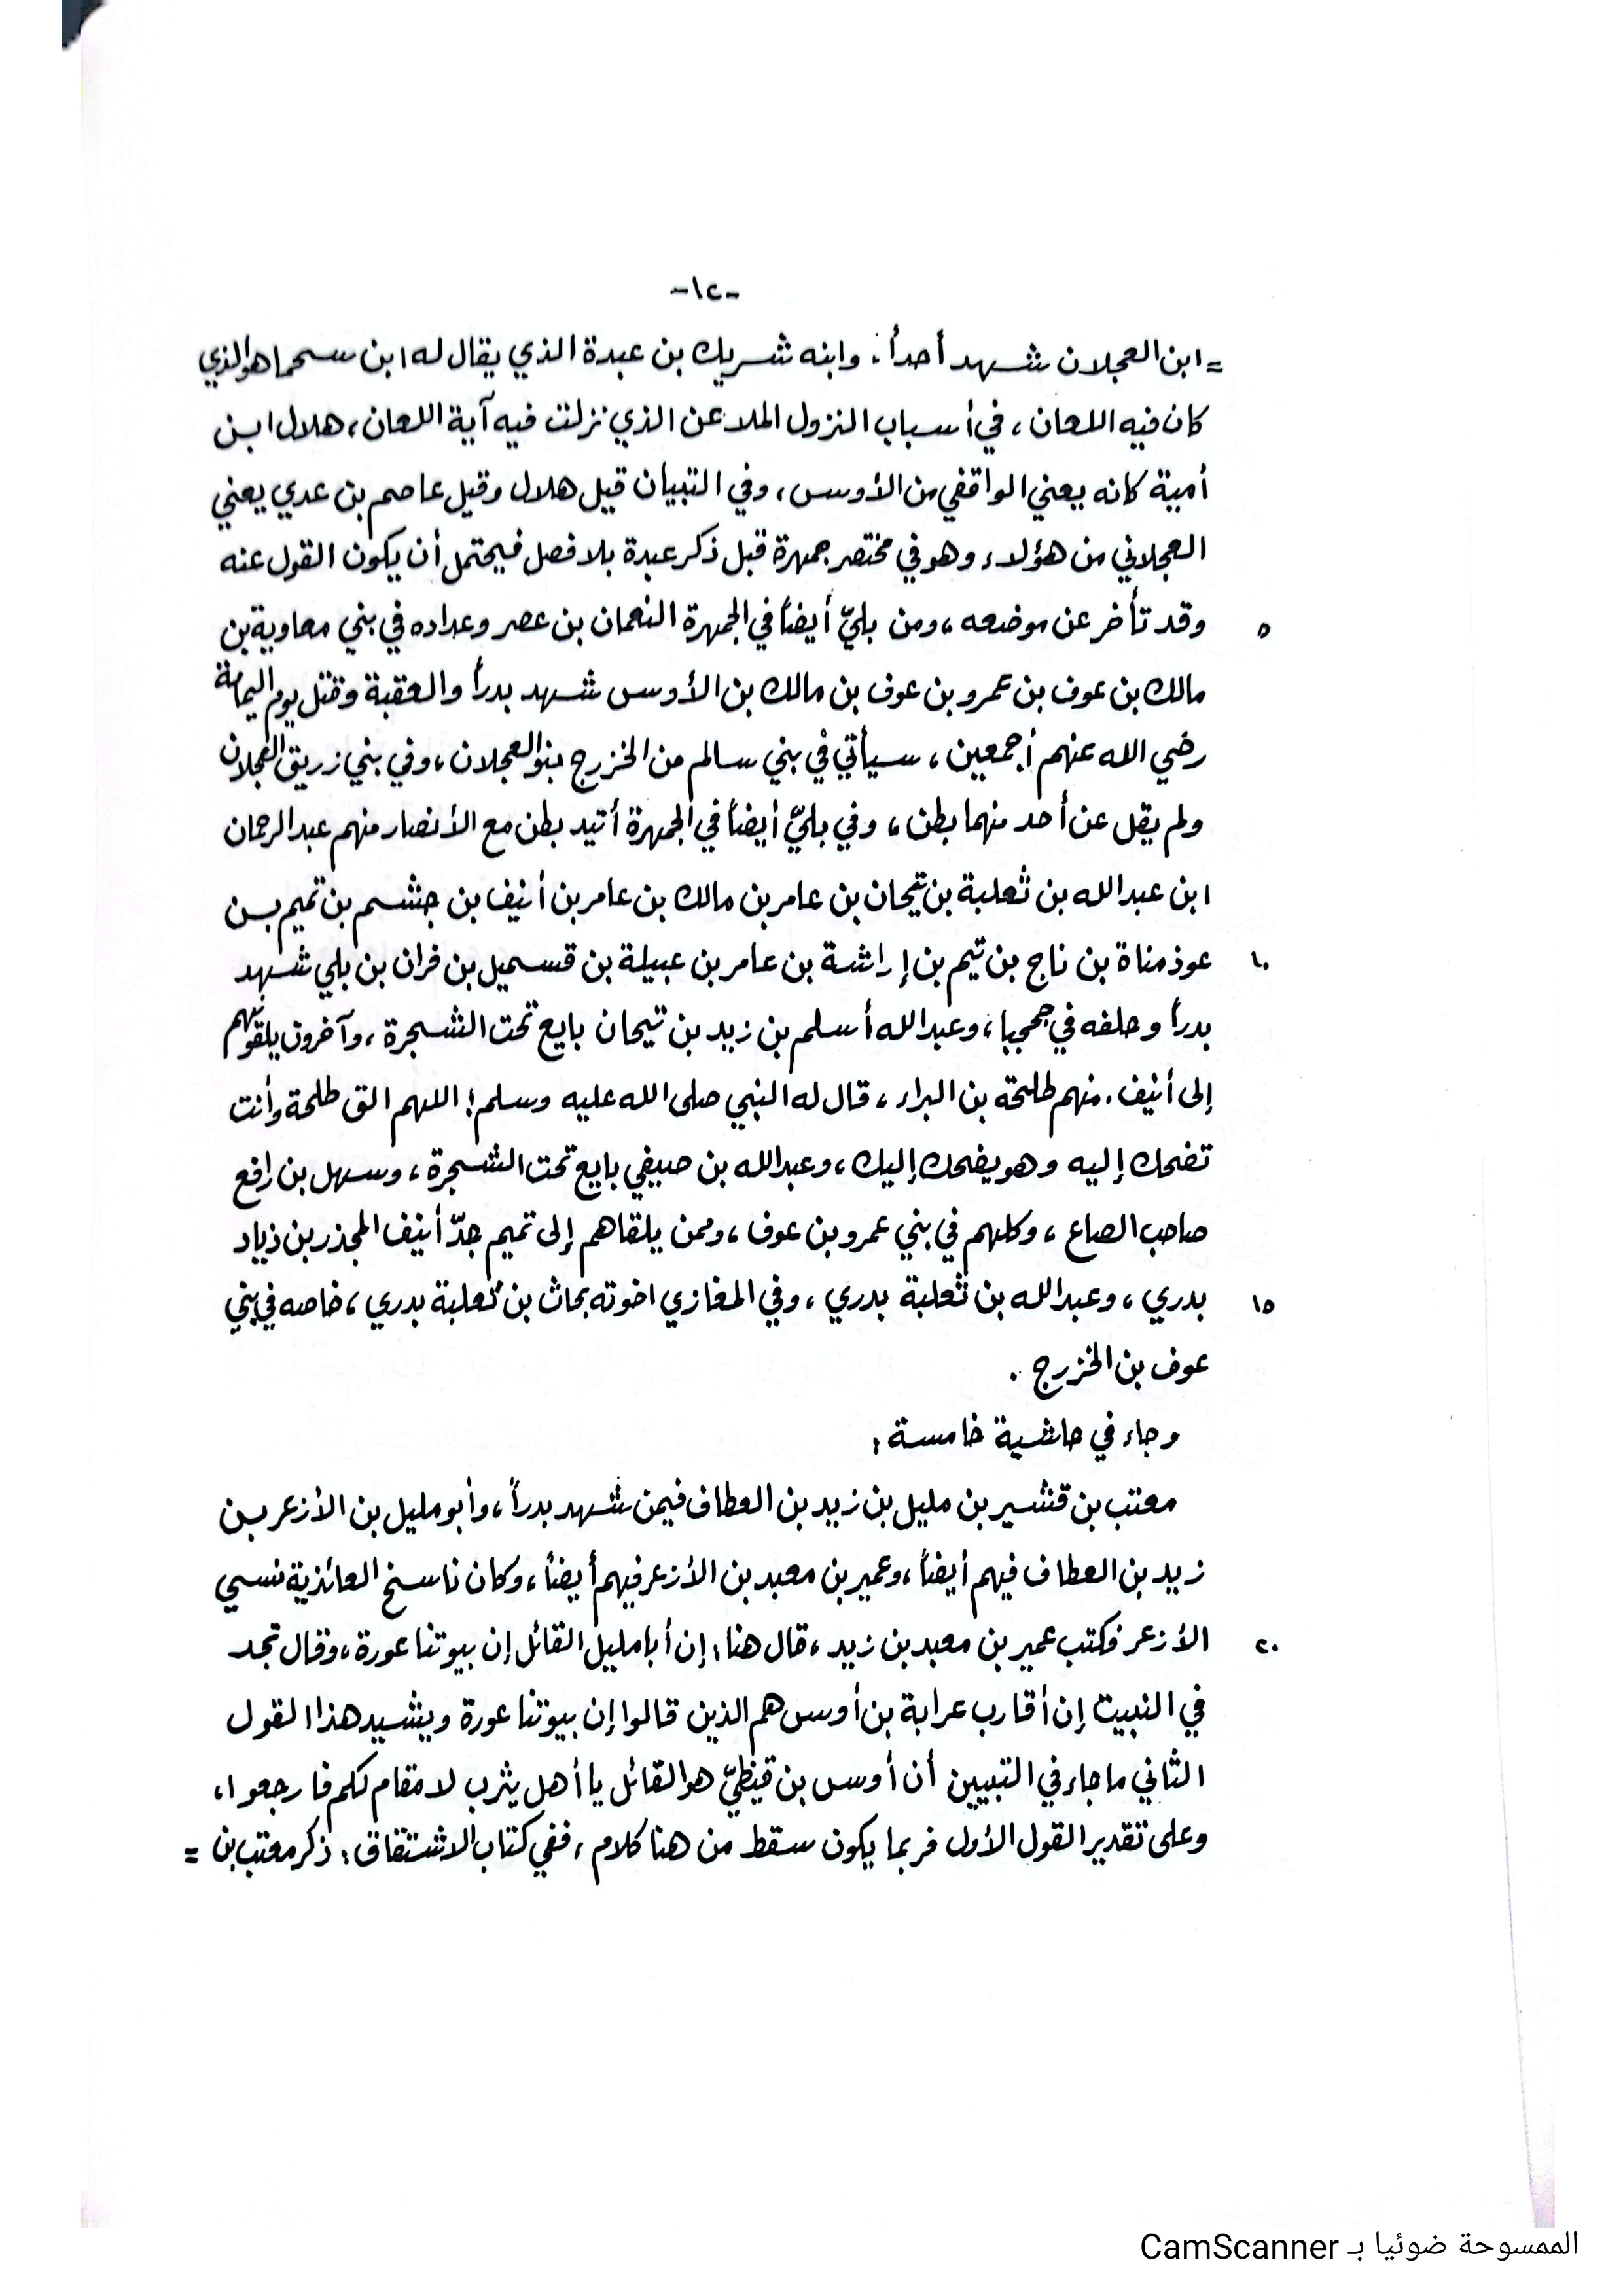 -١٢-
= ابن العجلان شهد أحداً. وابنه شريك بن عبدة الذي يقال له ابن سحما هو الذي
كان فيه اللعان، في أسباب النزول الملاعن الذي نزلت فيه آية اللعان، هلال ابن
أمية كانه يعني الواقفي من الأوس، وفي التبيان قيل هلال وقيل عاصم بن عدي يعني
العجلاني من هؤلاء وهو في مختصر جمهرة قبل ذكر عبدة بلا فصل فيحتمل أن يكون القول عنه
٥ وقد تأخر عن موضعه، ومن بليّ أيضاً في الجمهرة النعمان بن عصر وعداده في بني معاوية بن
مالك بن عوف بن عمرو بن عوف بن مالك بن الأوس شهد بدراً والعقبة وقتل يوم اليمامة
رضي الله عنهم أجمعين، سيأتي في بني سالم من الخزرج بنو العجلان، وفي بني زريق العجلان
ولم يقل عن أحد منهما بطن، وفي بليّ أيضاً في الجمهرة أتيد بطن مع الأنصار منهم عبد الرحمان
ابن عبد الله بن ثعلبة بن تيحان بن عامر بن مالك بن عامر بن أنيف بن جشم بن تميم بن
١٠ عوذ مناة بن ناج بن تيم بن إراشة بن عامر بن عبيلة بن قسميل بن فران بن بلي شهد
بدراً وحلفه في جحجبا، وعبد الله أسلم بن زيد بن تيحان بايع تحت الشجرة، وآخرون يلقونهم
إلى أنيف. منهم طلحة بن البراء، قال له النبي صلى الله عليه وسلم: اللهم الق طلحة وأنت
تضحك إليه وهو يضحك إليك، وعبد الله بن صيفي بايع تحت الشجرة، وسهل بن رافع
صاحب الصاع، وكلهم في بني عمرو بن عوف، وممن يلقاهم إلى تميم جدّ أنيف المجذر بن ذياد
١٥ بدري، وعبد الله بن ثعلبة بدري، وفي المغازي اخوته بحاث بن ثعلبة بدري، خاصه في بني
عوف بن الخزرج.
وجاء في حاشية خامسة:
معتب بن قشير بن مليل بن زيد بن العطاف فيمن شهد بدراً، وأبو مليل بن الأزعر بن
زيد بن العطاف فيهم أيضاً، وعمير بن معبد بن الأزعر فيهم أيضاً، وكان ناسخ العائذية نسي
٢٠ الأزعر فكتب عمير بن معبد بن زيد، قال هنا: إن أبا مليل القائل إن بيوتنا عورة، وقال تجد
في النبيت إن أقارب عرابة بن أوس هم الذين قالوا إن بيوتنا عورة ويشيد هذا القول
الثاني ما جاء في التبيين أن أوس بن قيظيّ هو القائل يا أهل يثرب لا مقام لكم فارجعوا،
وعلى تقدير القول الأول فربما يكون سقط من هنا كلام، ففي كتاب الاشتقاق: ذكر معتب بن =
الممسوحة ضوئيا بـ CamScanner